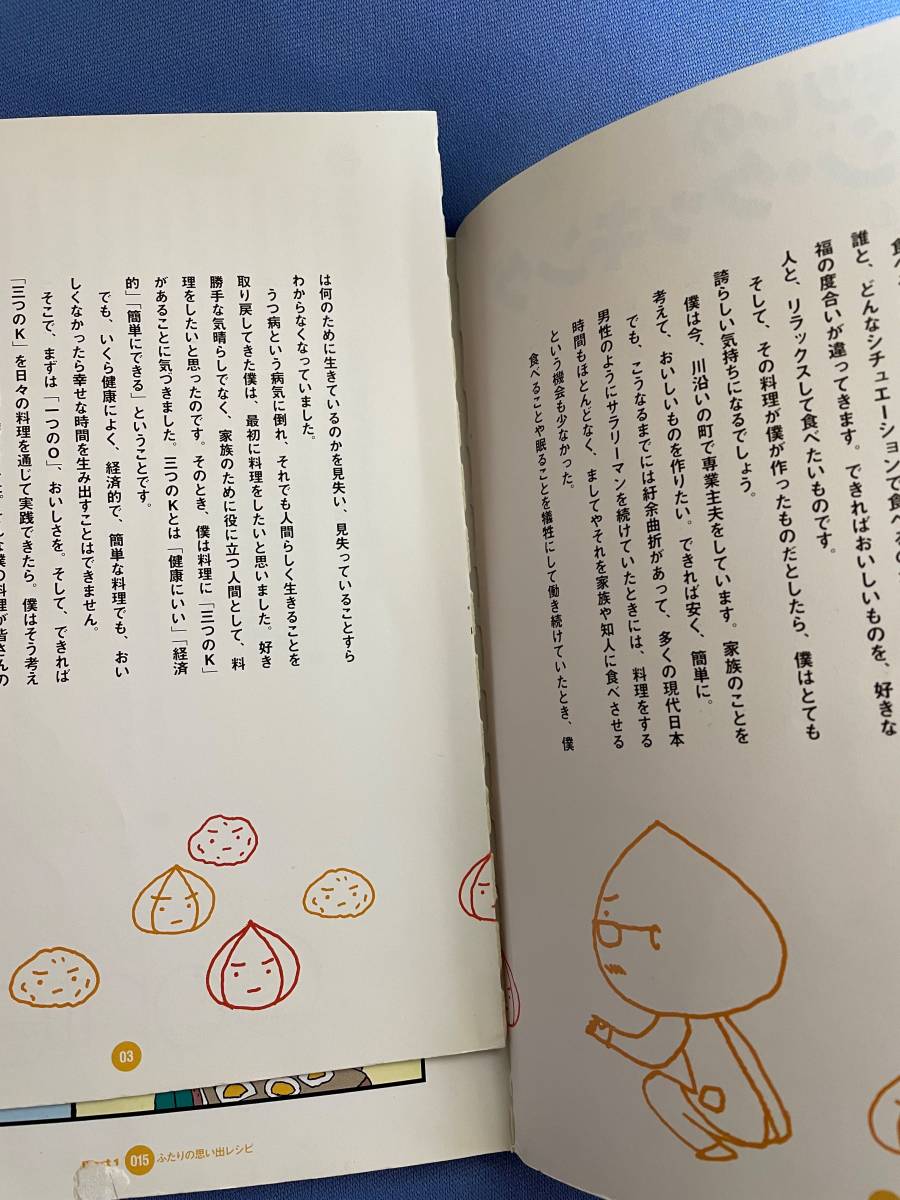 誰と、どんなシチュエーションで食べる
福の度合いが違ってきます。できればおいしいものを、好きな
人と、リラックスして食べたいものです。
そして、その料理が僕が作ったものだとしたら、僕はとても
誇らしい気持ちになるでしょう。
僕は今、川沿いの町で専業主夫をしています。家族のことを
考えて、おいしいものを作りたい。できれば安く、簡単に。
でも、こうなるまでには紆余曲折があって、多くの現代日本
男性のようにサラリーマンを続けていたときには、料理をする
時間もほとんどなく、ましてやそれを家族や知人に食べさせる
という機会も少なかった。
食べることや眠ることを犠牲にして働き続けていたとき、僕
は何のために生きているのかを見失い、見失っていることすら
わからなくなっていました。
うつ病という病気に倒れ、それでも人間らしく生きることを
取り戻してきた僕は、最初に料理をしたいと思いました。好き
勝手な気晴らしでなく、家族のために役に立つ人間として、料
理をしたいと思ったのです。そのとき、僕は料理に「三つのK」
があることに気づきました。三つのKとは「健康にいい」「経済
的」「簡単にできる」ということです。
でも、いくら健康によく、経済的で、簡単な料理でも、おい
しくなかったら幸せな時間を生み出すことはできません。
そこで、まずは「一つのO」、おいしさを。そして、できれば
「三つのK」を日々の料理を通じて実践できたら。僕はそう考え
な僕の料理が皆さんの
03
015 ふたりの思い出レシピ